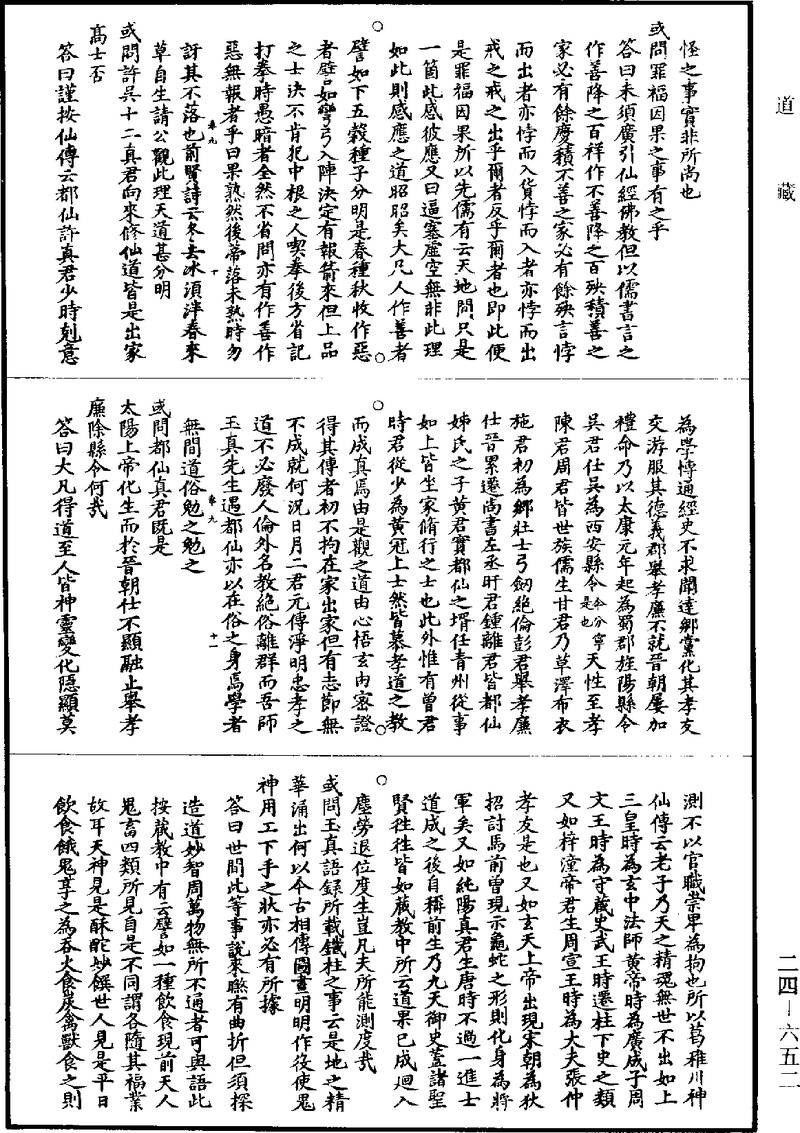 道藏
怪之事實非所尚也
或問罪福因果之事有之乎
答曰未須廣引仙經佛教但以儒書言之
作善降之百祥作不善降之百殃積善之
家必有餘慶積不善之家必有餘殃言悖
而出者亦悖而入貨悖而入者亦悖而出
戒之戒之出乎爾者反乎爾者也即此便
是罪福因果所以先儒有云天地間只是
一箇此感彼應又曰逼塞虛空無非此理
如此則感應之道昭昭矣大凡人作善者
譬如下五穀種子分明是春種秋收作惡
者譬如彎弓入陣決定有報箭來但上品
之士決不肯犯中根之人喫拳後方省記
打拳時愚暗者全然不省問亦有作善作
惡無報者乎曰果熟然後蒂落未熟時勿
訝其不落也前賢詩云冬去冰須泮春來
卷九
十
草自生請公觀此理天道甚分明
或問許吳十二真君向來修仙道皆是出家
高士否
答曰謹按仙傳云都仙許真君少時剋意
為學博通經史不求聞達鄉黨化其孝友
交游服其德義郡舉孝廉不就晉朝屢加
禮命乃以太康元年起為蜀郡旌陽縣令
吳君仕吳為西安縣令今分寧是也天性至孝
陳君周君皆世族儒生甘君乃草澤布衣
施君初為鄉壯士弓劒絕倫彭君舉孝廉
仕晉累遷尚書左丞盱君鍾離君皆都仙
姊氏之子黃君實都仙之壻任青州從事
如上皆坐家脩行之士也此外惟有曾君
時君從少為黃冠上士然皆慕孝道之教
而成真焉由是觀之道由心悟玄由密證
得其傳者初不拘在家出家但有志節無
不成就何況日月二君元傳淨明忠孝之
道不必廢人倫外名教絕俗離群而吾師
玉真先生遇都仙亦以在俗之身焉學者
卷九
十一
無間道俗勉之勉之
或問都仙真君既是
太陽上帝化生而於晉朝仕不顯融止舉孝
廉除縣令何哉
答曰大凡得道至人皆神靈變化隱顯莫
測不以官職崇卑為拘也所以葛稚川神
仙傳云老子乃天之精魂無世不出如上
三皇時為玄中法師黃帝時為廣成子周
文王時為守藏史武王時遷柱下史之類
又如梓潼帝君生周宣王時為大夫張仲
孝友是也又如玄天上帝出現宋朝為狄
招討馬前曾現示龜蛇之形則化身為將
軍矣又如純陽真君生唐時不過一進士
道成之後自稱前生乃九天御史蓋諸聖
賢往往皆如藏教中所云道果已成迴入
塵勞退位度生豈凡夫所能測度哉
或問玉真語録所載鐵柱之事云是地之精
華涌出何以今古相傳圖畫明明作役使鬼
神用工下手之狀亦必有所據
答曰世間此等事說來暾有曲折但須探
造道妙智周萬物無所不通者可與語此
按藏教中有云譬如一種飲食現前天人
鬼畜四類所見自是不同謂各隨其福業
故耳天神見是酥酡妙饌世人見是平日
飲食餓鬼享之為吞火食炭禽獸食之則
二四—六五二